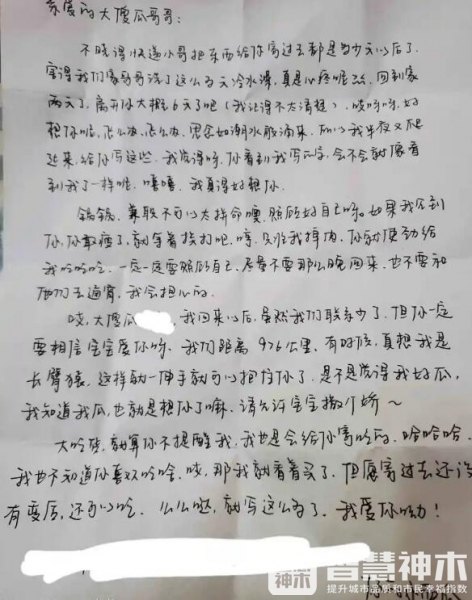 亲爱的大傻瓜哥哥：
不晓得快递小哥把东西给你寄过去都是多少天以后了。
害得我们家哥哥洗了这么多天冷水澡，真是心疼呢
回到家
两天了，离开你大概6天了吧（我记得不太清楚）。
想你啦，怎么办，怎么办，思念如潮水般涌来。所以我半夜又爬
起来，给你写这些。我觉得呀，你看到我写的字，会不会就像看
到我了一样呢，嘻嘻，我真得好想你。
锅锅，兼职不可以太拼命噢，照顾好自己呀。如果我见到
你，你敢瘦了，就等着挨打吧，哼，
我哈哈哈，一定一定要照顾自己，尽量不要那么晚回来，也不要和
他们去通宵，我会担心的。
哎，大傻瓜 ，我回来以后，虽然我们联系少了，但你一定
要相信宝宝爱你呀，我们距离976公里，有时候，真想我是
长臂猿，这样就一伸手就可以把你抱住了，是不是觉得我好瓜，
我知道我瓜，也就是想你了嘛，请允许宝宝撒个娇～
大哈皮，就算你不提醒我，我也是会给你寄吃的，哈哈哈，
我也不知道你喜欢吃啥，哎，那我就看着买了，但愿寄过去还没
有变质，还可以吃。么么哒，就写这么多了，我爱你呦！
智慧神木
神木
提升城市品质和市民幸福指数